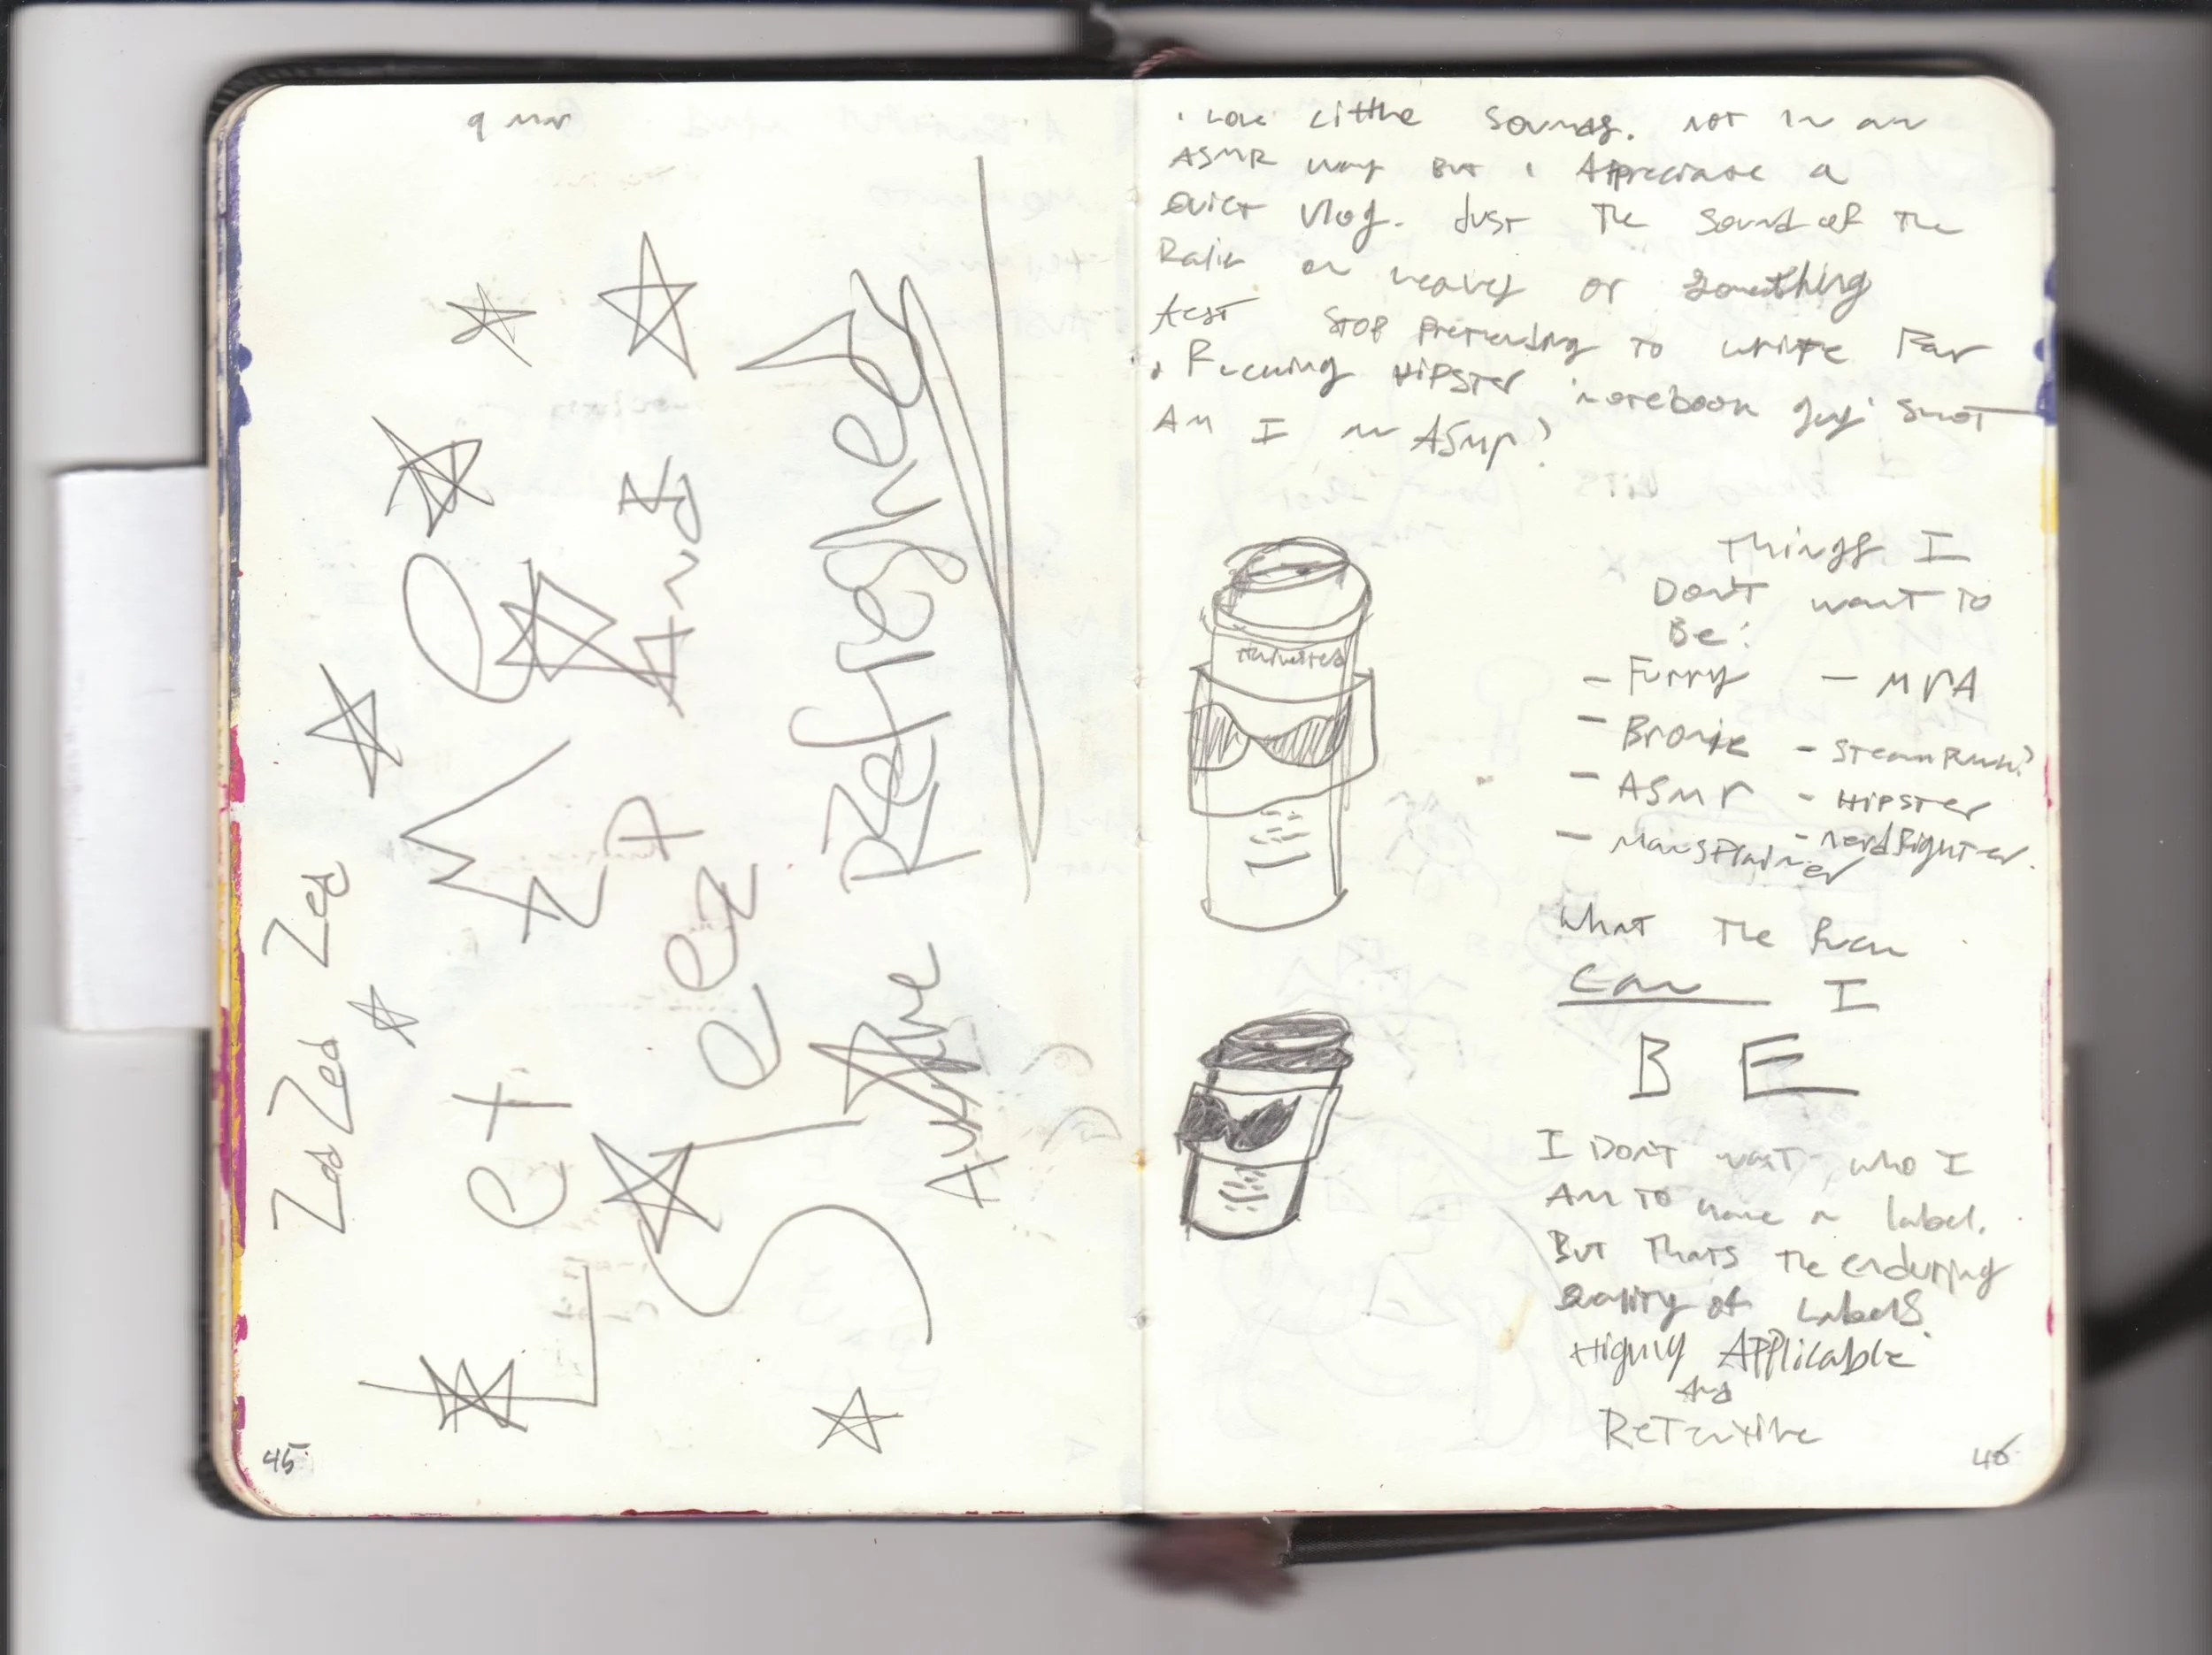 9 mar
Zed Zed Zed
Let Me
Sleep And
Awake Refreshed
45
I love little sounds. not in an
ASMR way but I Appreciate a
Quiet Vlog. Just the sound of the
Rain on leaves or something
Stop pretending to write for
Fucking Hipster notebook guy shot
Am I an ASMR?
Things I
Don't want to
Be:
- Furry - MRA
- Bronie - SteamPunk?
- ASMR - Hipster
- Mansplainer - nerdfighter.
What the Fuck
Can I
BE
I Don't want who I
Am to have a label.
But thats the enduring
Quality of Labels.
Highly Applicable
And
46